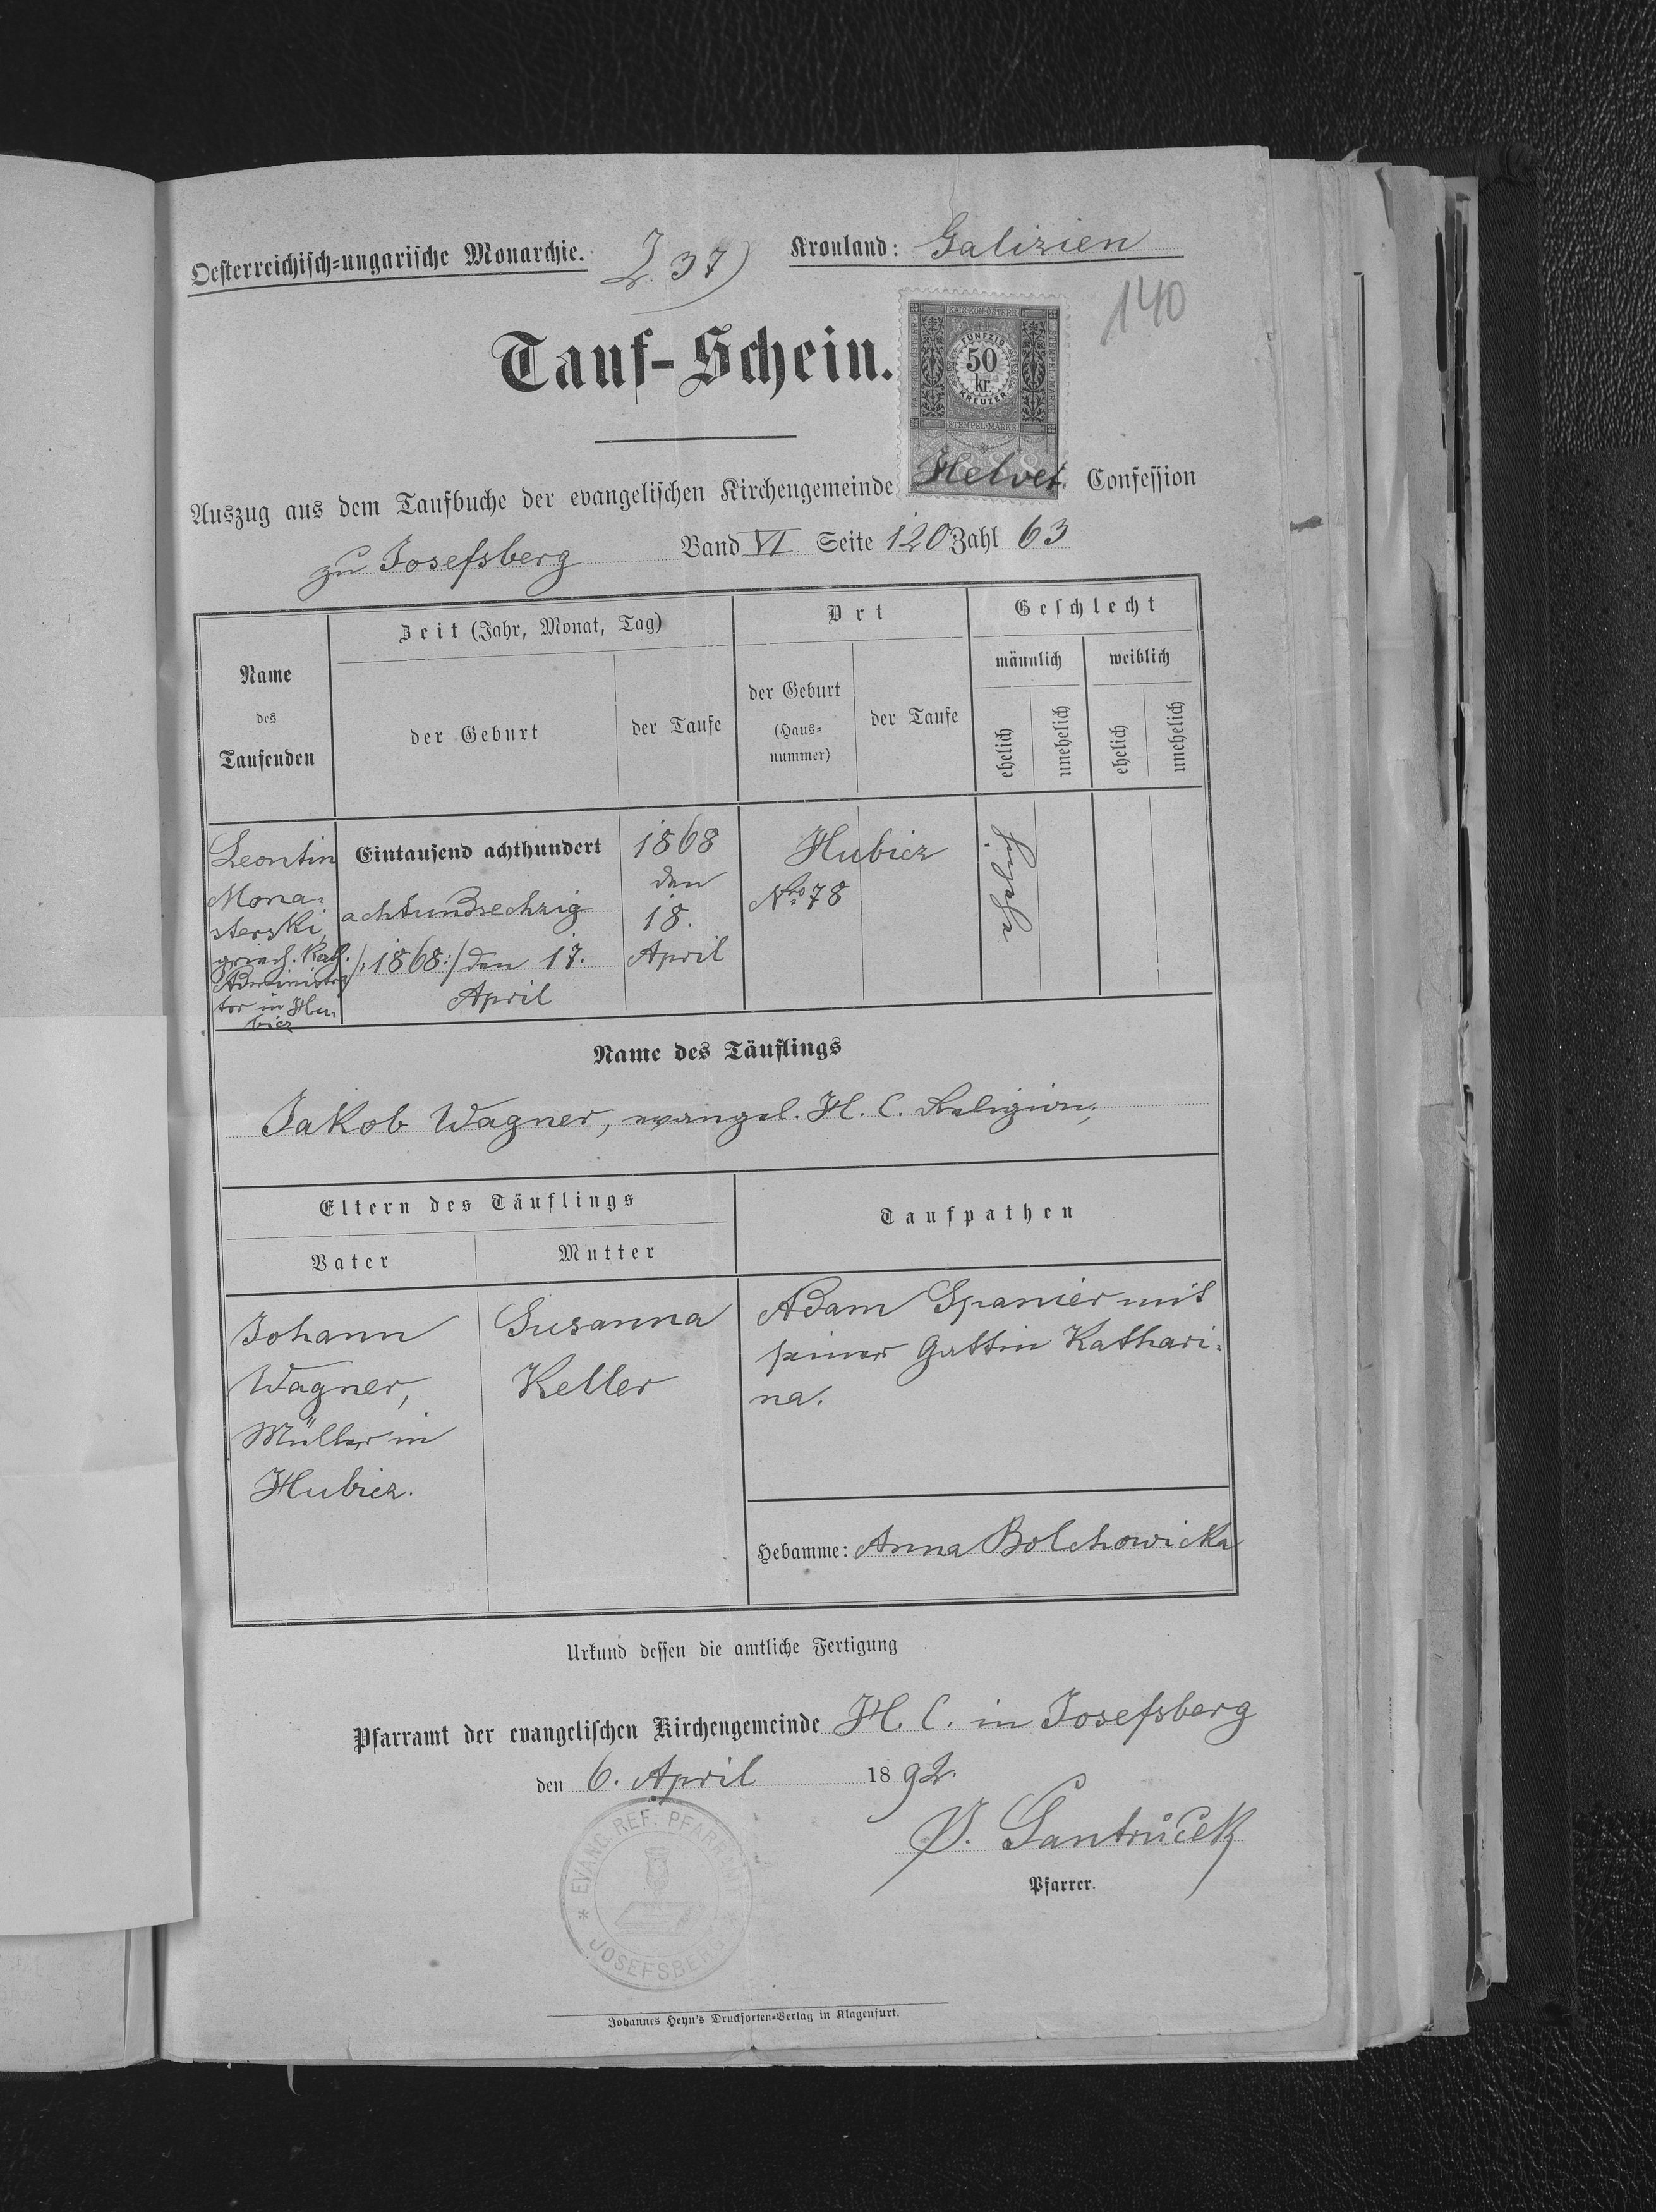 Oesterreichisch=ungarische Monarchie.
Z. 37)
Kronland: Galizien
140
Tauf-Schein.
FÜNFZIG
50
kr.
KREUZER
STEMPEL-MARKE
Auszug aus dem Taufbuche der evangelischen Kirchengemeinde Helvet. Confession
zu Josefsberg Band VI Seite 120 Zahl 63
Name
des
Taufenden
Zeit (Jahr, Monat, Tag)
der Geburt
der Taufe
Ort
der Geburt
(Haus=
nummer)
der Taufe
Geschlecht
männlich
weiblich
ehelich
unehelich
ehelich
unehelich
Leontin
Mona=
sterski,
griech. Kath.
Administra
tor in Hu=
bicz
Eintausend achthundert
achtundsechzig
/:1868:/ den 17.
April
1868
den
18.
April
Hubicz
Nro 78
ehelich.
Name des Täuflings
Jakob Wagner, evangel. H. C. Religion;
Eltern des Täuflings
Vater
Mutter
Taufpathen
Johann
Wagner,
Müller in
Hubicz.
Susanna
Keller
Adam Spanier mit
seiner Gattin Kathari=
na.
Hebamme: Anna Bolchowicka
Urkund dessen die amtliche Fertigung
Pfarramt der evangelischen Kirchengemeinde H. C. in Josefsberg
den 6. April 1892.
EVANG. REF. PFARRAMT
* JOSEFSBERG *
Santrůček
Pfarrer.
Johannes Heyn's Drucksorten=Verlag in Klagenfurt.